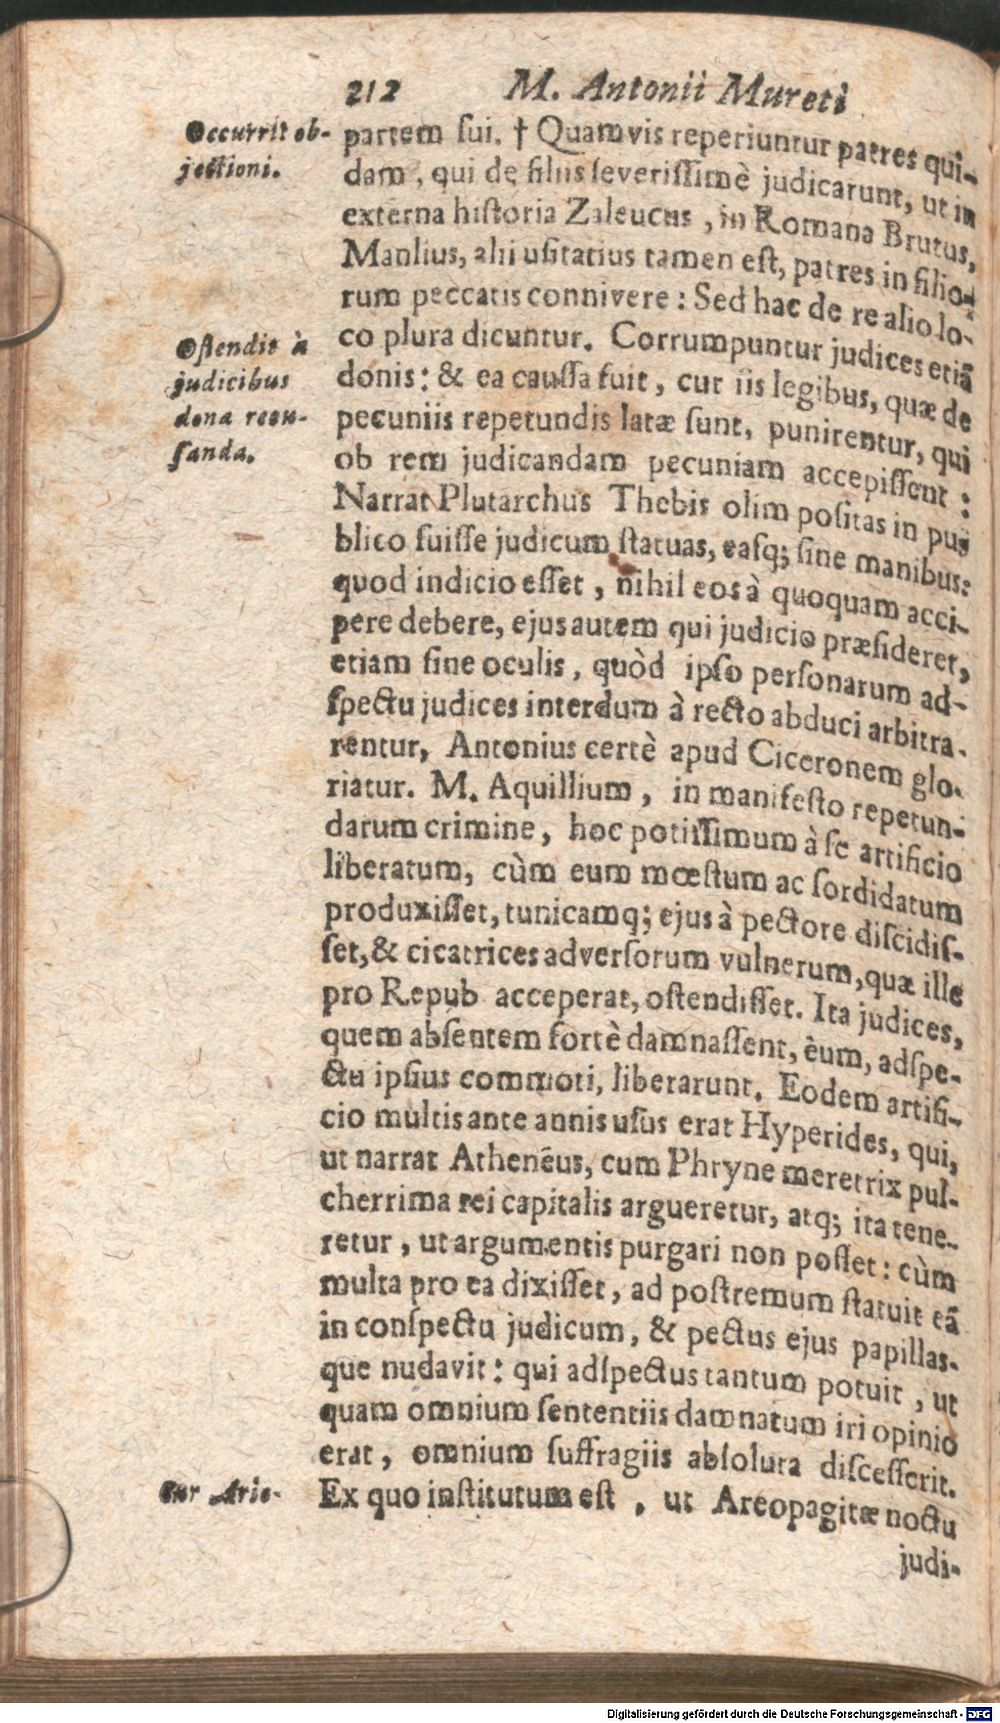 212 M. Antonii Mureti
Occurrit ob-
jectioni.
partem sui. † Quamvis reperiuntur patres qui-
dam, qui de filiis severissimè judicarunt, ut in
externa historia Zaleucus, in Romana Brutus,
Manlius, alii usitatius tamen est, patres in filio-
rum peccatis connivere: Sed hac de re alio lo-
co plura dicuntur. Corrumpuntur judices etiã
Ostendit à
judicibus
dona recu-
sanda.
donis: & ea caussa fuit, cur iis legibus, quæ de
pecuniis repetundis latæ sunt, punirentur, qui
ob rem judicandam pecuniam accepissent:
Narrat Plutarchus Thebis olim positas in pu-
blico fuisse judicum statuas, easq; sine manibus:
quod indicio esset, nihil eos à quoquam acci-
pere debere, ejus autem qui judicio præsideret,
etiam sine oculis, quòd ipso personarum ad-
spectu judices interdum à recto abduci arbitra-
rentur, Antonius certè apud Ciceronem glo-
riatur. M. Aquillium, in manifesto repetun-
darum crimine, hoc potissimum à se artificio
liberatum, cùm eum mœstum ac sordidatum
produxisset, tunicamq; ejus à pectore discidis-
set, & cicatrices adversorum vulnerum, quæ ille
pro Repub acceperat, ostendisset. Ita judices,
quem absentem fortè damnassent, èum, adspe-
ctu ipsius commoti, liberarunt. Eodem artifi-
cio multis ante annis usus erat Hyperides, qui,
ut narrat Athenêus, cum Phryne meretrix pul-
cherrima rei capitalis argueretur, atq; ita tene-
retur, ut argumentis purgari non posset: cùm
multa pro ea dixisset, ad postremum statuit eã
in conspectu judicum, & pectus ejus papillas-
que nudavit: qui adspectus tantum potuit, ut
quam omnium sententiis damnatum iri opinio
erat, omnium suffragiis absoluta discesserit.
Cur Arie-
Ex quo institutum est, ut Areopagitæ noctu
judi-
Digitalisierung gefördert durch die Deutsche Forschungsgemeinschaft - DFG